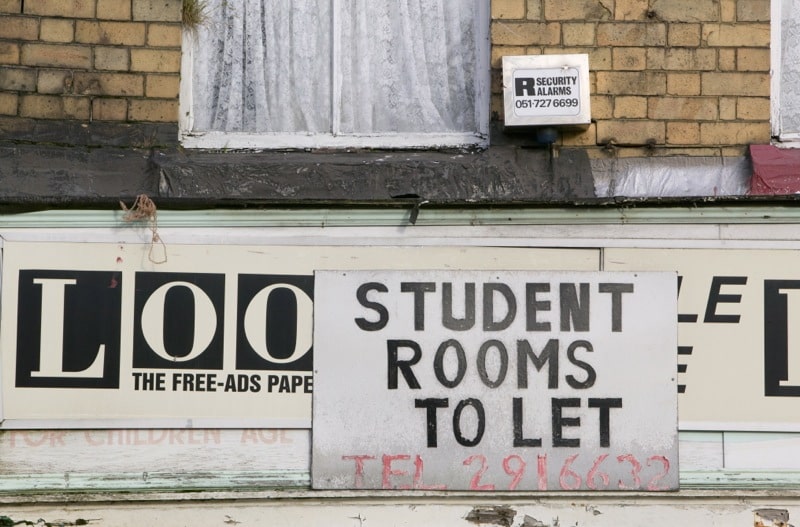 R SECURITY
ALARMS
051·727 6699
LOO
THE FREE-ADS PAPE
STUDENT
ROOMS
TO LET
TEL 2916632
LE
E
FOR CHILDREN AGE